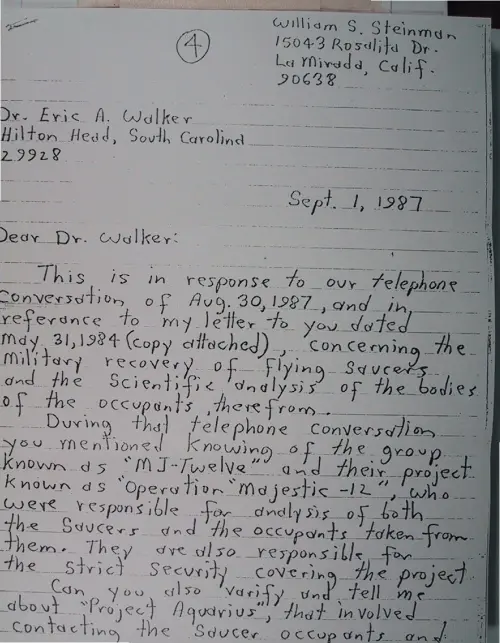 William S. Steinman
15043 Rosalita Dr.
La Mirada, Calif.
90638
4
Dr. Eric A. Walker
Hilton Head, South Carolina
29928
Sept. 1, 1987
Dear Dr. Walker:
This is in response to our telephone
conversation of Aug. 30, 1987, and in
referance to my letter to you dated
May 31, 1984 (copy attached), concerning the
military recovery of Flying Saucers
and the Scientific analysis of the bodies
of the occupants, therefrom.
During that telephone conversation
you mentioned knowing of the group
known as "MJ-Twelve" and their project
known as "Operation "Majestic -12", who
were responsible for analysis of both
the Saucers and the occupants taken from
them. They are also responsible for
the strict Security covering the project.
Can you also varify and tell me
about "Project Aquarius", that involved
contacting the Saucer occupants and